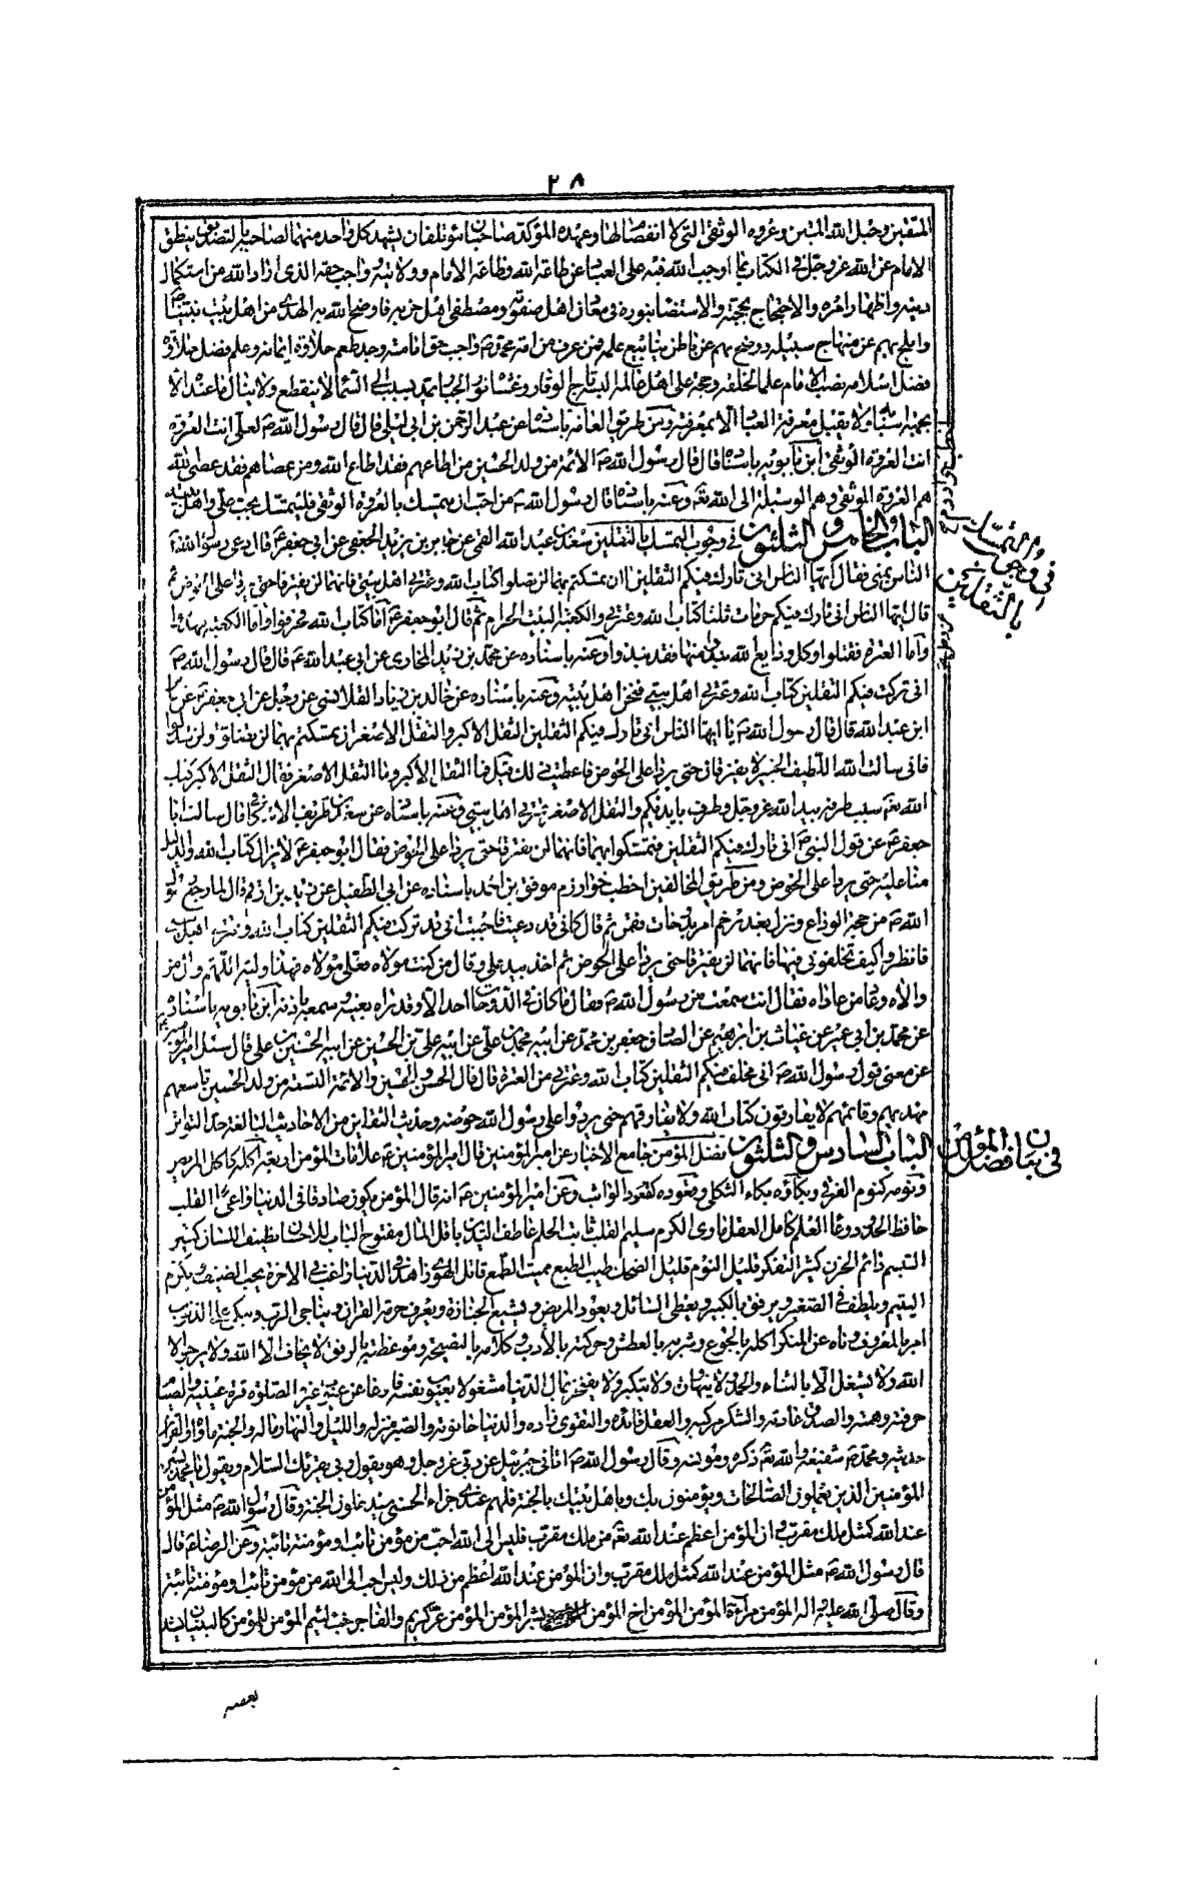 ٢٨
المتقين وحبل الله المتين وعروه الوثقى التى لا انفصام لها وعهده المؤكد صاحبان مؤتلفان يشهد كل واحد منهما لصاحبه بالتصديق ينطق
الامام عن الله عز وجل فى الكتاب بما اوجب الله فيه على العباد عن طاعة الله وطاعة الامام وولايته واجب حقه الذى اراد الله عن استكمال
دينه واظهار امره والاحتجاج بحجته والاستضاءة بنوره فى معادن اهل صفوته ومصطفى اهل خيرته فاوضح الله به الهدى من اهل بيت نبيه
وابلج بهم عن منهاج سبيله ووضح بهم عن باطن ينابيع علمه فمن عرف من امة محمد واجب حق امامته وجد طعم حلاوة ايمانه وعلم فضل طلاوة
فضل اسلامه نصب الامام علما لخلقه وحجة على اهل عالمه البسه تاج الوقار وغشاه نور الجبار يمد بسبب الى السماء لا ينقطع ولا ينال ما عند الله الا
بجهة اسبابه ولا يقبل معرفة العباد الا بمعرفته ومن طريق العامة باسناده عن عبد الرحمن بن ابى ليلى قال قال رسول الله لعلى انت العروة
انت العروة الوثقى ابن بابويه باسناده قال قال رسول الله الائمة من ولد الحسين من اطاعهم فقد اطاع الله ومن عصاهم فقد عصى الله
هم العروة الوثقى وهم الوسيلة الى الله تعالى وعنه باسناده قال رسول الله من احب ان يتمسك بالعروة الوثقى فليتمسك بحب على واهل بيته
الباب الخامس والثلثون فى وجوب التمسك بالثقلين سعد بن عبد الله القمى عن جابر بن يزيد الجعفى عن ابى جعفر قال دعى رسول الله
فى وجوب التمسك
بالثقلين
الناس بمنى فقال ايها الناس انى تارك فيكم الثقلين ان تمسكتم بهما لن تضلوا كتاب الله وعترتى اهل بيتى فانهما لن يفترقا حتى يردا على الحوض ثم
قال ايها الناس انى تارك فيكم حرمات ثلثا كتاب الله وعترتى والكعبة البيت الحرام ثم قال ابو جعفر اما كتاب الله فحرفوا واما الكعبة فهدموا
واما العترة فقتلوا وكل ودايع الله نبذوا منها فقد نبذوا وعنه باسناده عن محمد بن عن ابى عبد الله قال قال رسول الله
انى تركت فيكم الثقلين كتاب الله وعترتى اهل بيتى فنحن اهل بيته وعنه باسناده عن خالد بن زياد القلانسى عن رجل عن ابى جعفر عن جابر
ابن عبد الله قال قال رسول الله يا ايها الناس انى تارك فيكم الثقلين الثقل الاكبر والثقل الاصغر ان تمسكتم بهما لن تضلوا ولن تبدلوا
فانى سالت الله اللطيف الخبير لا يفترقان حتى يردا على الحوض فاعطيت ذلك قيل فما الثقل الاكبر وما الثقل الاصغر فقال الثقل الاكبر كتاب
الله سبب طرفه بيد الله عز وجل وطرف بايديكم والثقل الاصغر عترتى اهل بيتى وعنه باسناده عن سعد بن طريف الاسكاف قال سالت ابا
جعفر عن قول النبى انى تارك فيكم الثقلين فتمسكوا بهما فانهما لن يفترقا حتى يردا على الحوض فقال ابو جعفر لا يزال كتاب الله والدليل
منا عليه حتى يردا على الحوض ومن طريق المخالفين اخطب خوارزم موفق بن احمد باسناده عن ابى الطفيل عن زيد بن ارقم قال لما رجع رسول
الله من حجة الوداع ونزل بغدير خم امر بدوحات فقمن ثم قال كانى قد دعيت فاجبت انى قد تركت فيكم الثقلين كتاب الله وعترتى اهل بيتى
فانظروا كيف تخلفونى فيهما فانهما لن يفترقا حتى يردا على الحوض ثم اخذ بيد على وقال من كنت مولاه فعلى مولاه فهذا وليه اللهم وال من
والاه وعاد من عاداه فقال انت سمعت من رسول الله فقال ما كان فى الدوحات احد الا وقد راه بعينيه وسمعه باذنه ابن بابويه باسناده
عن محمد بن ابى عمير عن غياث بن ابراهيم عن الصادق جعفر بن محمد عن ابيه محمد بن على عن ابيه على بن الحسين عن ابيه الحسين بن على قال سئل امير المؤمنين
عن معنى قول رسول الله انى مخلف فيكم الثقلين كتاب الله وعترتى من العترة قال قال الحسن والحسين والائمة التسعة من ولد الحسين تاسعهم
مهديهم وقائمهم لا يفارقون كتاب الله ولا يفارقهم حتى يردوا على رسول الله حوضه وحديث الثقلين من الاحاديث البالغة حد التواتر
الباب السادس والثلثون فضل المؤمن جامع الاخبار عن امير المؤمنين قال امير المؤمنين علامات المؤمن اربعة اكله كاكل المريض
فى بيان فضل المؤمن
ونومه كنوم الغرقى وبكاؤه بكاء الثكلى وقعوده كقعود الواثب وعن امير المؤمنين انه قال المؤمن يكون صادقا فى الدنيا واعى القلب
حافظ الحدود وعاء العلم كامل العقل ماوى الكرم سليم القلب ثابت الحلم عاطف اليدين باذل المال مفتوح الباب للاحسان لطيف اللسان كثير
التبسم دائم الحزن كثير التفكر قليل النوم قليل الضحك طيب الطبع مميت الطمع قاتل الهوى زاهدا فى الدنيا راغبا فى الاخرة يحب الضيف ويكرم
اليتيم ويلطف الصغير ويرفق بالكبير ويعطى السائل ويعود المريض ويشيع الجنازة ويعرف حرمة القران ويناجى الرب ويبكى على الذنوب
امر بالمعروف وناه عن المنكر اكله بالجوع وشربه بالعطش وحركته بالادب وكلامه بالنصيحة وموعظته بالرفق لا يخاف الا الله ولا يرجو الا
الله ولا يشغل الا بالثناء والحمد ولا يتهاون ولا يتكبر ولا يفتخر بمال الدنيا مشغولا بعيوب نفسه فارغا عن عيوب غيره الصلوة قرة عينيه والصيام
حرفته وهمته والصدق عادته والشكر مركبه والعقل قائده والتقوى زاده والدنيا حانوته والصبر منزله والليل والنهار ماله والجنة ماواه والقران
حديثه ومحمد شفيعه والله تعالى ذكره ومونسه وقال رسول الله اتانى جبرئيل عن ربى عز وجل وهو يقول ربى يقرئك السلام ويقول يا محمد بشر
المؤمنين الذين يعملون الصالحات ويؤمنون بك وباهل بيتك بالجنة فلهم عندى جزاء الحسنى سيدخلون الجنة وقال رسول الله مثل المؤمن
عند الله كمثل ملك مقرب وان المؤمن اعظم عند الله تعالى من ملك مقرب فليس الى الله احب من مؤمن تائب او مؤمنة تائبة وعن الرضا قال
قال رسول الله مثل المؤمن عند الله كمثل ملك مقرب وان المؤمن عند الله اعظم من ذلك وليس احب الى الله من مؤمن تائب او مؤمنة تائبة
وقال صلى الله عليه واله المؤمن مراة المؤمن المؤمن اخ المؤمن المؤمن غر كريم والفاجر خب لئيم المؤمن للمؤمن كالبنيان يشد
بعضه